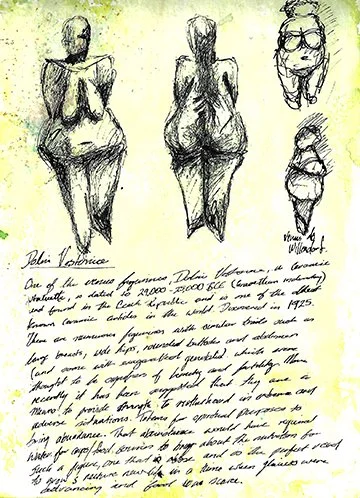 Venus of
Willendorf.
Dolni Vestonice
One of the venus figurines, Dolni Vestonice, a ceramic
statuette, is dated to 29,000 - 25,000 BCE (Gravettian industry)
and found in the Czech Republic and is one of the oldest
known ceramic articles in the world. Discovered in 1925.
There are numerous figurines with similar traits such as
large breasts, wide hips, rounded buttocks and abdomen
(and some with exaggerated genitalia) which were
thought to be symbols of beauty and fertility. More
recently it has been suggested that they are a
means to provide strength to motherhood in extreme and
adverse situations. Totems for spiritual purposes to
bring abundance. That abundance would have required
water for crops/food sources to bring about the nutrition for
such a figure, one that is and so the perfect vessel
to grow & nurture new life in a time when glaciers were
advancing and food was scarce.